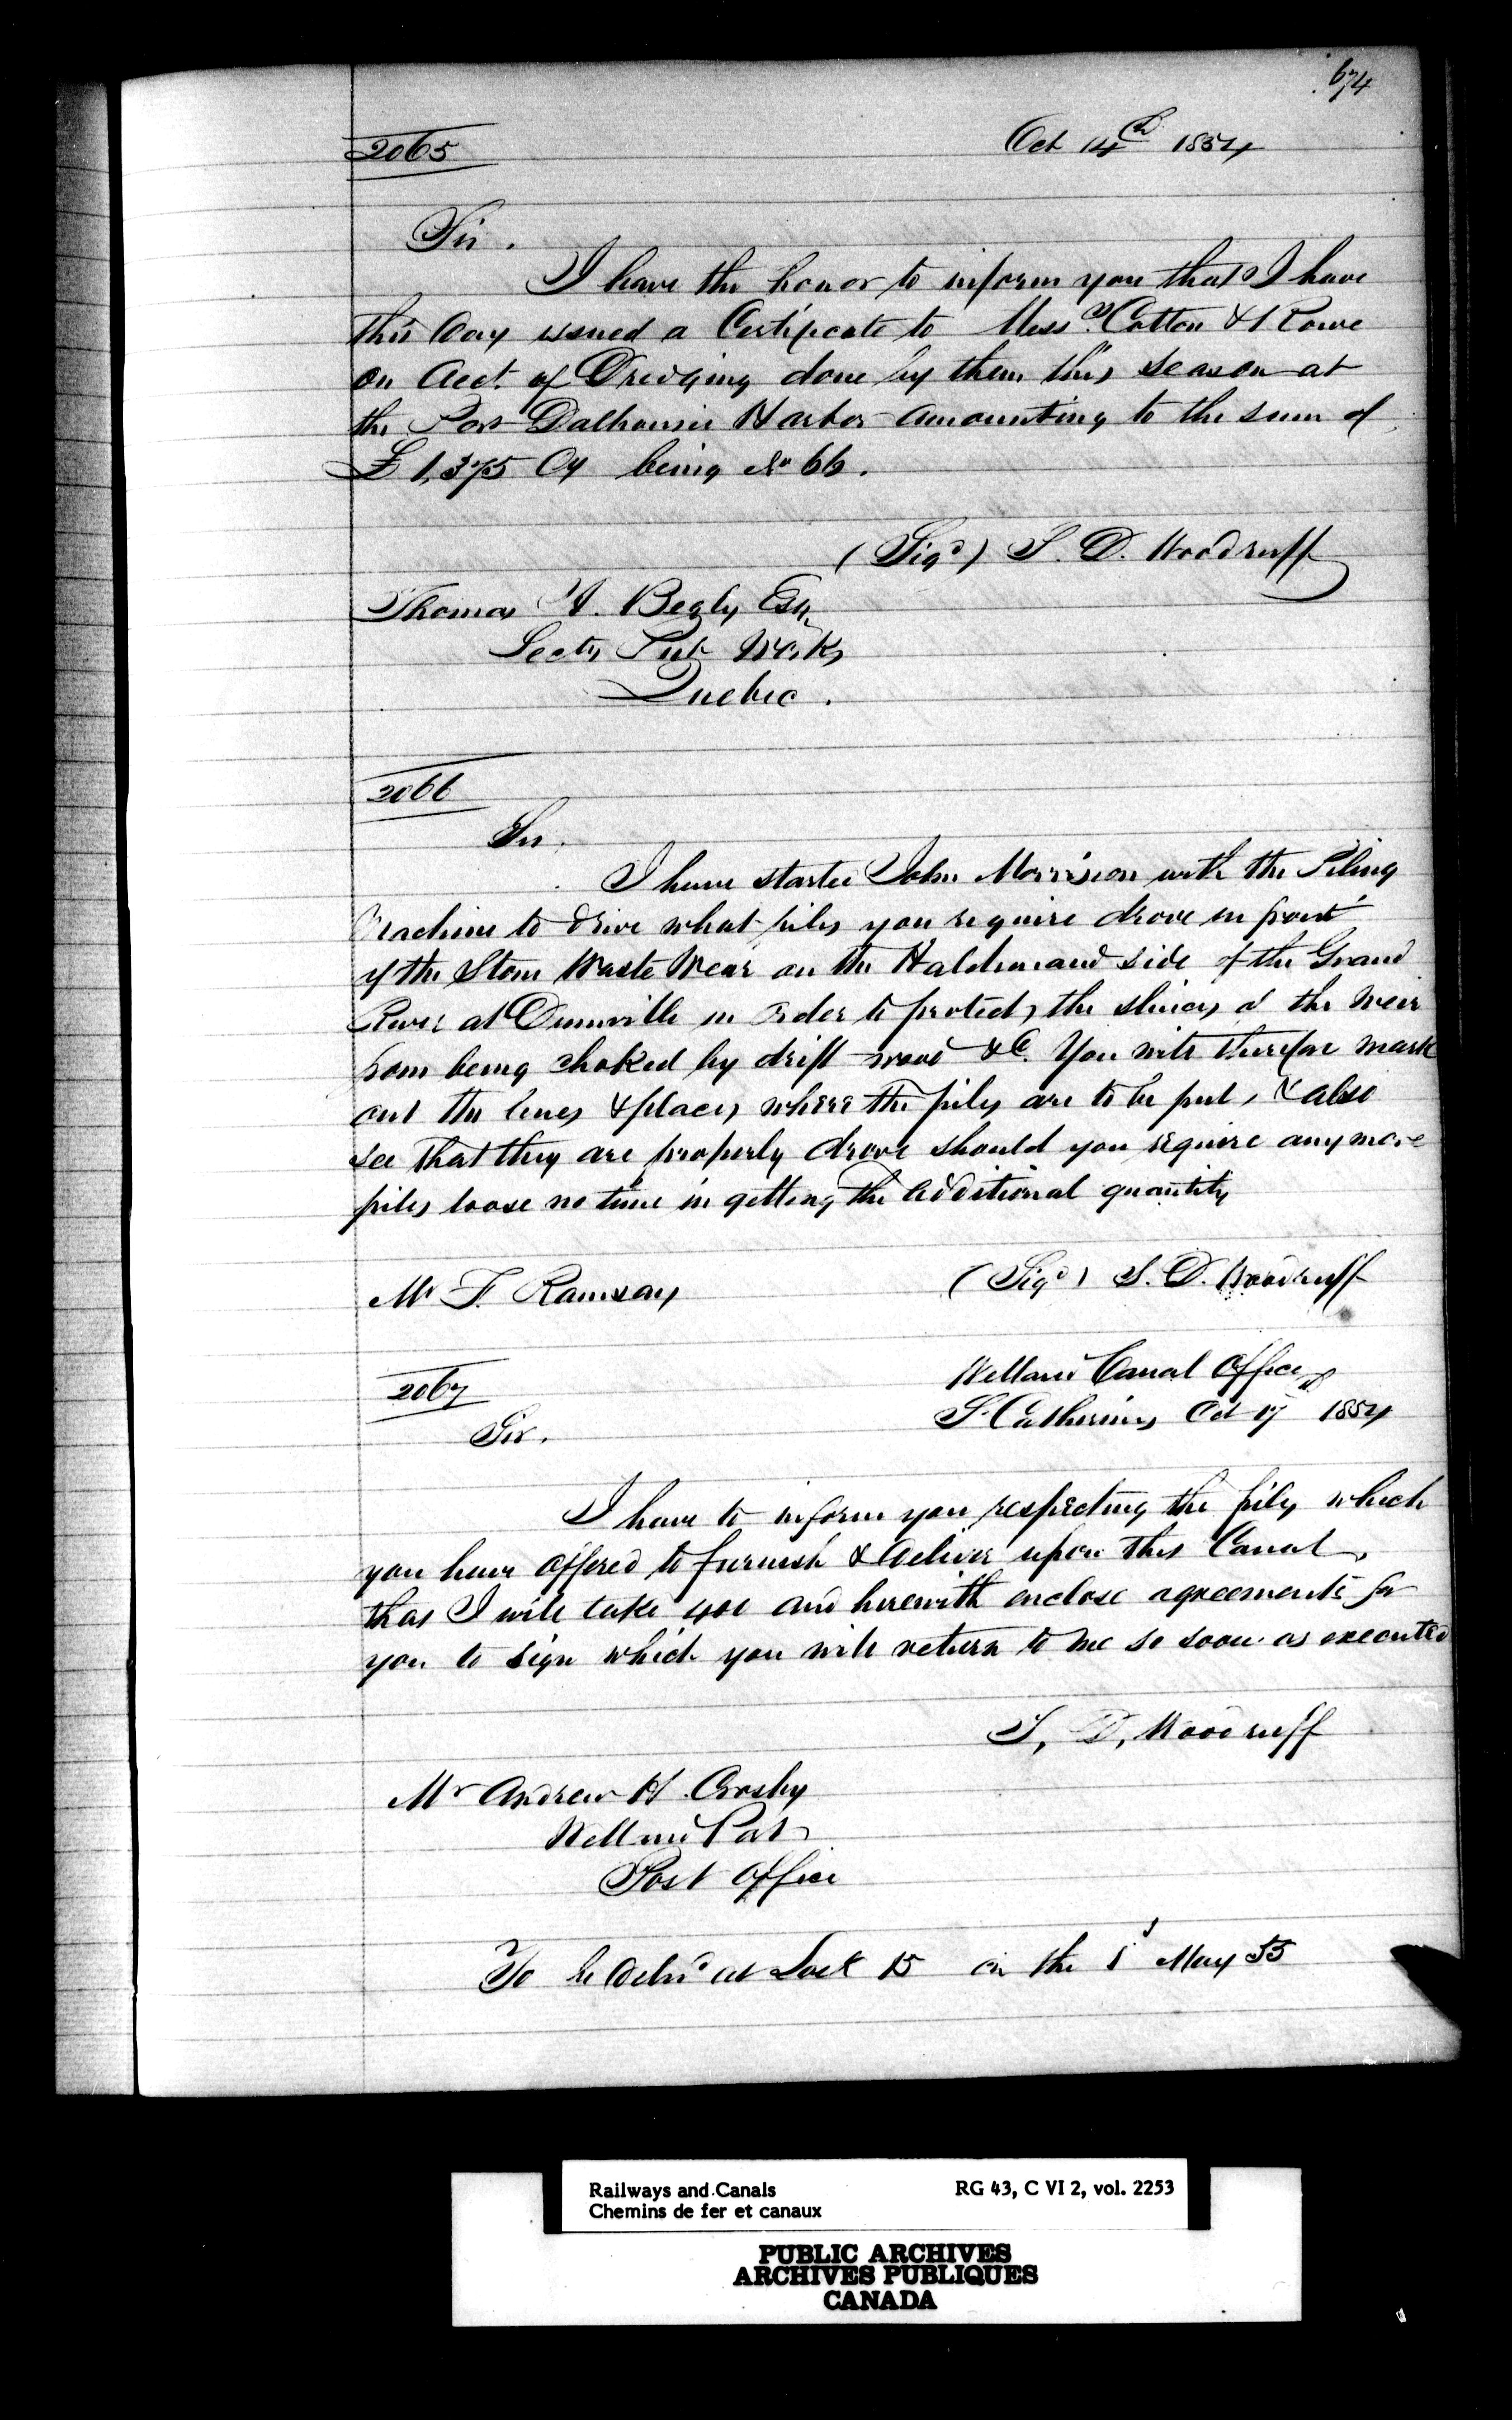 674
2065
Oct 14th 1854
Sir.
I have the honor to inform you that I have
this day issued a Certificate to Messrs. Cotton & Rowe
on Acct. of Dredging done by them this season at
the Port Dalhousie Harbor amounting to the sum of
£1,375 Cy being No 66.
(Sigd) S. D. Woodruff
Thomas A. Begly Esq
Secty Pub Works
Quebec.
2066
Sir.
I have started John Morrison with the Piling
Machine to drive what piles you require drove in front
of the Stone Waste Wear on the Haldimand side of the Grand
River at Dunnville in order to protect, the sluices of the Weir
from being choked by drift wood &c. You will therefore mark
out the lines & places where the piles are to be put, & also
see that they are properly drove should you require any more
piles loose no time in getting the additional quantity
(Sigd) S. D. Woodruff
Mr F. Ramsay
2067
Welland Canal Office
St Catherines Oct 17th 1854
Sir.
I have to inform you respecting the piles which
you have offered to furnish & deliver upon this Canal,
that I will take 400 and herewith enclose agreements for
you to sign which you will return to me so soon as executed
S, D, Woodruff
Mr Andrew H. Crosby
Welland Port
Post Office
To be deld at Lock 15 on the 1st May 55
Railways and Canals
Chemins de fer et canaux
RG 43, C VI 2, vol. 2253
PUBLIC ARCHIVES
ARCHIVES PUBLIQUES
CANADA